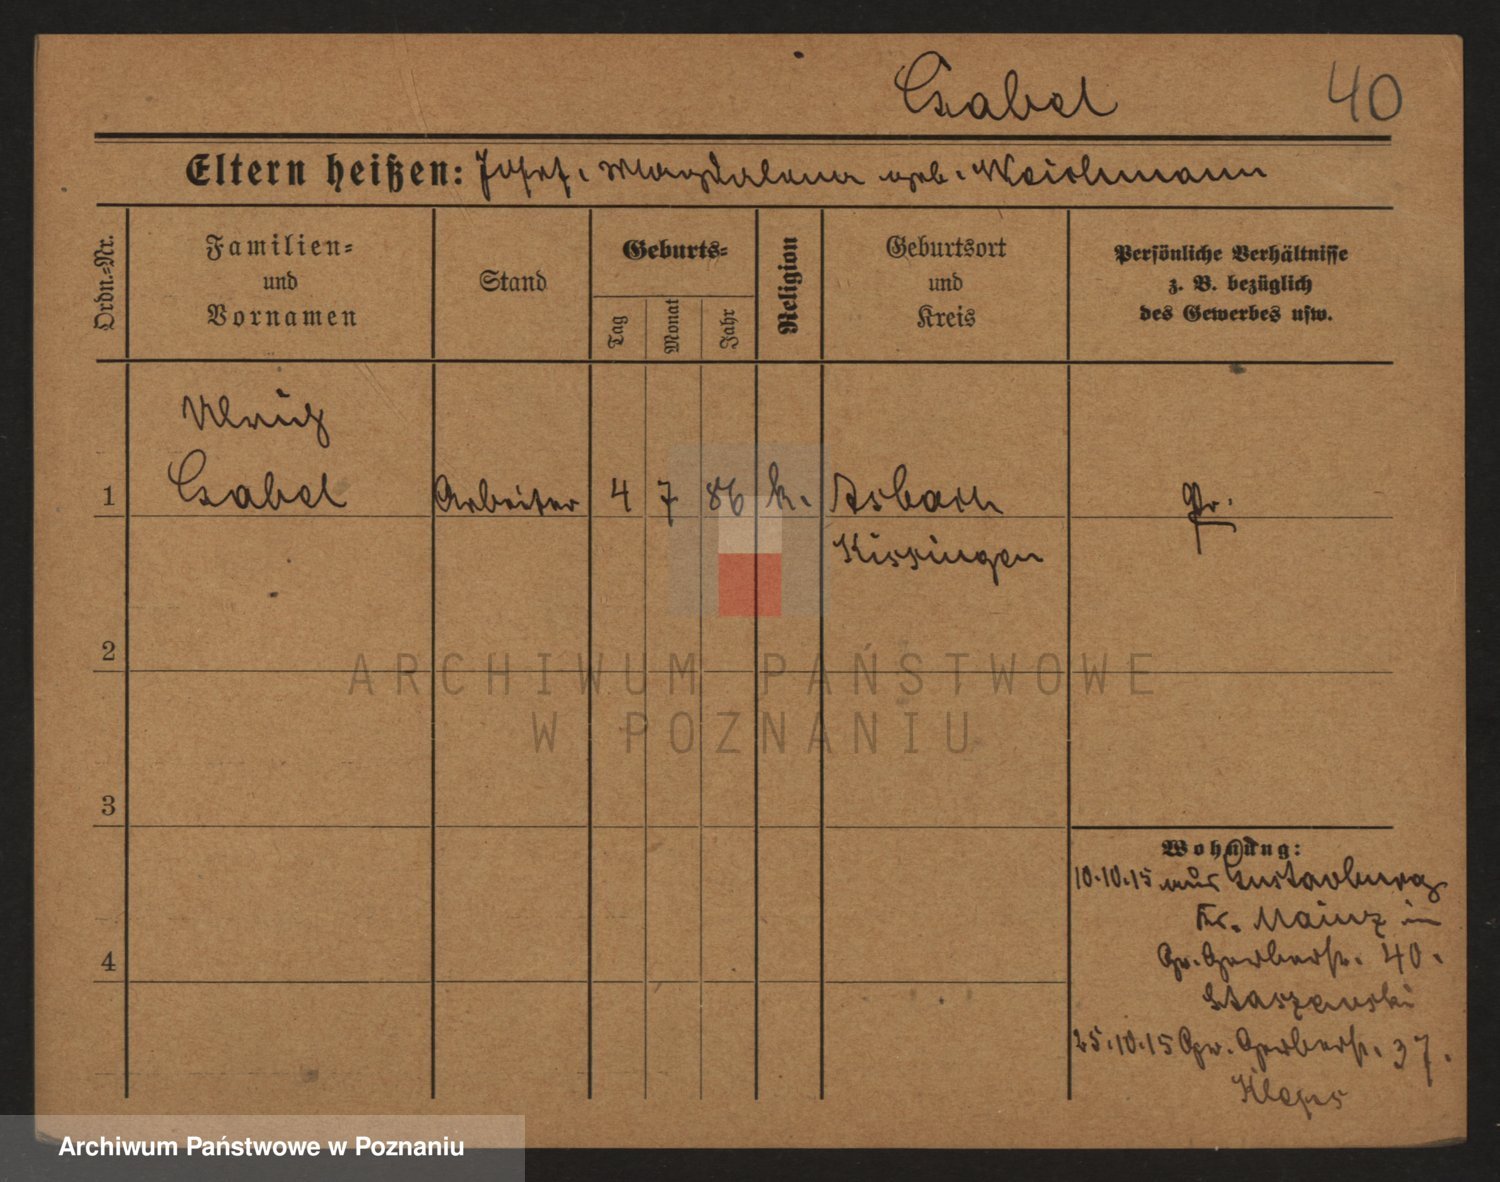 Csabel 40
Eltern heißen: Josef. Magdalena geb. Weichmann
Ordn.-Nr.
Familien-
und
Vornamen
Stand
Geburts-
Tag
Monat
Jahr
Religion
Geburtsort
und
Kreis
Persönliche Verhältnisse
z. B. bezüglich
des Gewerbes usw.
Csabel
1 Arbeiter 4 7 86 k. Asbach Pr.
Kissingen
2
3
4
Wohnung:
10.10.15 aus Gustavburg
Kr. Mainz in
Gr. Gerberstr. 40.
Staszewski
25.10.15 Gr. Gerberstr. 37.
ARCHIWUM PAŃSTWOWE
W POZNANIU
Archiwum Państwowe w Poznaniu